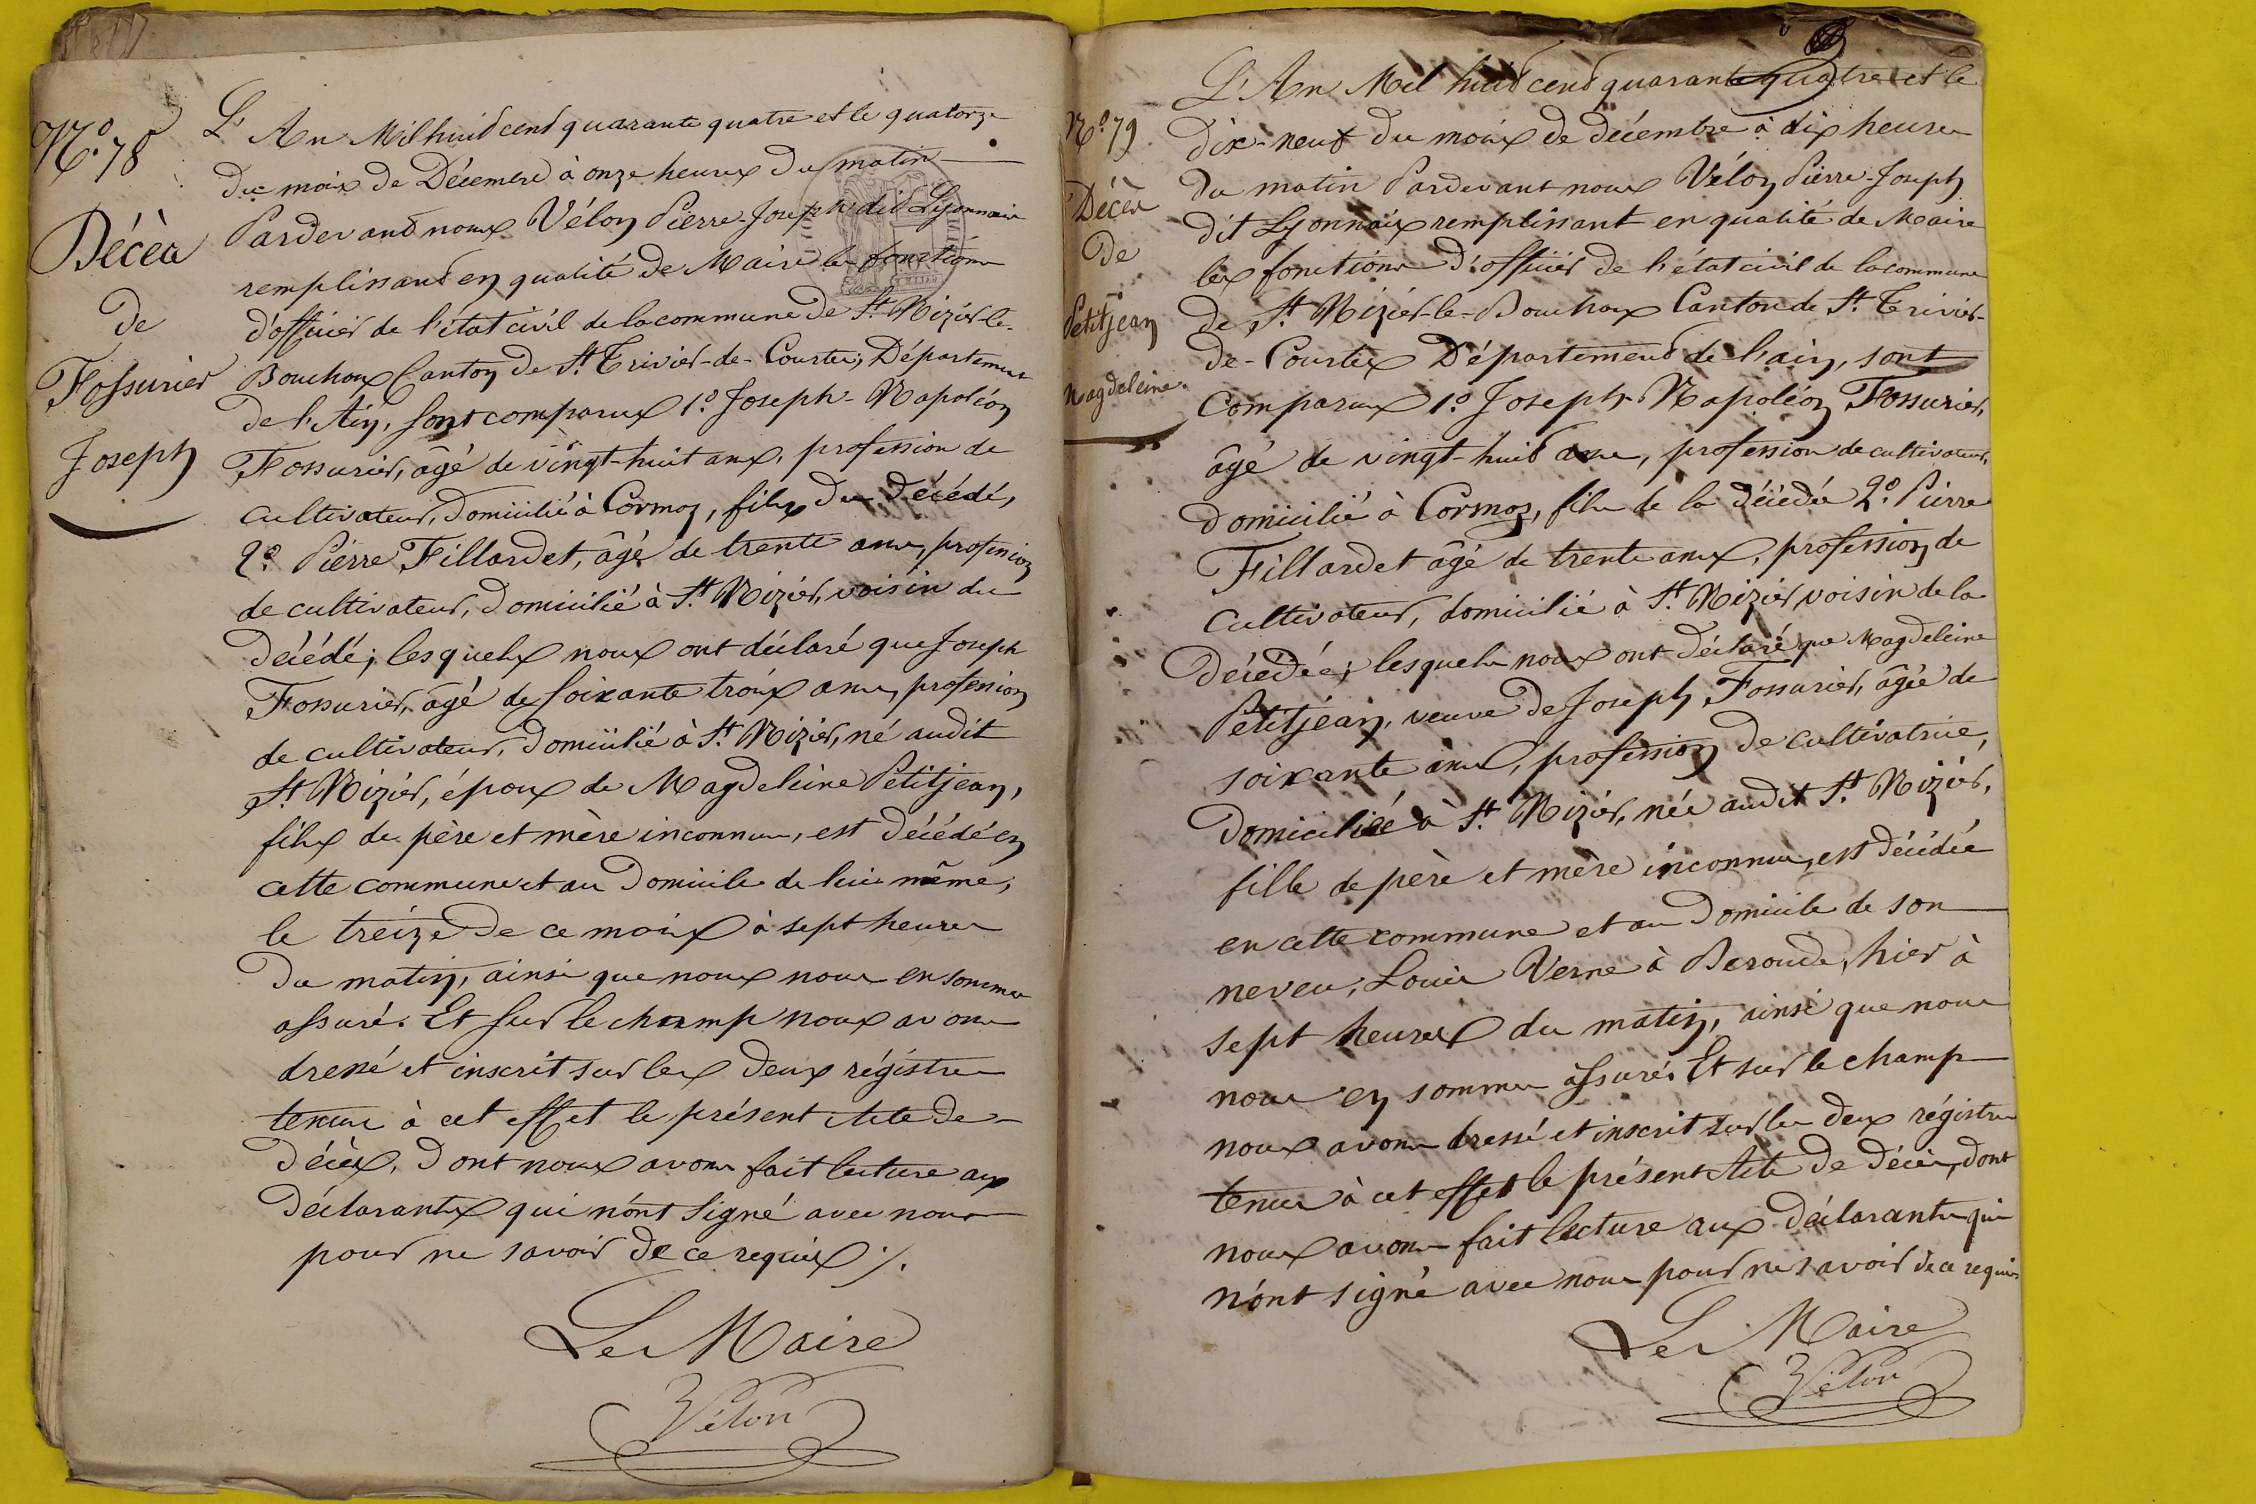 N.º 78
Décès
de
Fossurier
Joseph
L'An Mil huit cent quarante quatre et le quatorze
du mois de Décembre à onze heures du matin
Pardevant nous Vélon Pierre-Joseph dit Lyonnais
remplissant en qualité de Maire les fonctions
d'officier de l'état civil de la commune de St. Nizier-le-
Bouchoux Canton de St. Trivier-de-Courtes, Département
de l'Ain, sont comparus 1.º Joseph-Napoléon
Fossurier, âgé de vingt-huit ans, profession de
cultivateur, domicilié à Cormoz, fils du décédé,
2.º Pierre Fillardet, âgé de trente ans, profession
de cultivateur, domicilié à St. Nizier, voisin du
décédé; lesquels nous ont déclaré que Joseph
Fossurier, âgé de soixante trois ans, profession
de cultivateur, domicilié à St. Nizier, né audit
St. Nizier, époux de Magdeleine Petitjean,
fils de père et mère inconnus, est décédé en
cette commune et au domicile de lui même,
le treize de ce mois à sept heures
du matin, ainsi que nous nous en sommes
assuré. Et sur le champ nous avons
dressé et inscrit sur les deux régistres
tenus à cet effet le présent Acte de
décès, dont nous avons fait lecture aux
déclarants qui n'ont signé avec nous
pour ne savoir de ce requis ./.
Le Maire
Vélon
N.º 79
Décès
de
Petitjean
Magdeleine.
L'An Mil huit cent quarante quatre et le
dix-neuf du mois de décembre à dix heures
du matin Pardevant nous Vélon Pierre-Joseph
dit Lyonnais remplissant en qualité de Maire
les fonctions d'officier de l'état civil de la commune
de St. Nizier-le-Bouchoux Canton de St. Trivier-
de-Courtes Département de l'ain, sont
comparus 1.º Joseph-Napoléon Fossurier,
âgé de vingt-huit ans, profession de cultivateur,
domicilié à Cormoz, fils de la décédée 2.º Pierre
Fillardet âgé de trente ans, profession de
cultivateur, domicilié à St. Nizier voisin de la
décédée; lesquels nous ont déclaré que Magdeleine
Petitjean, veuve de Joseph Fossurier, âgée de
soixante ans, profession de cultivatrice,
domiciliée à St. Nizier, née audit St. Nizier,
fille de père et mère inconnus, est décédée
en cette commune et au domicile de son
neveu, Louis Verne à Beroude, hier à
sept heures du matin, ainsi que nous
nous en sommes assuré. Et sur le champ
nous avons dressé et inscrit sur les deux régistres
tenus à cet effet le présent Acte de décès, dont
nous avons fait lecture aux déclarants qui
n'ont signé avec nous pour ne savoir de ce requis
Le Maire
Vélon